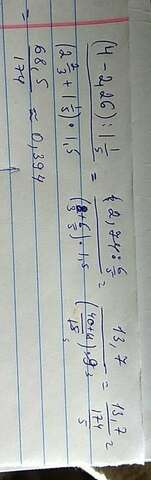 (4 - 2,26) : 1 1/5 / (2 2/3 + 1 1/5) · 1,5 = 2,74 : 6/5 / (8/3 + 6/5) · 1,5 = 13,7 / = 13,7 / 174/5 =
= 68,5 / 174 ≈ 0,394